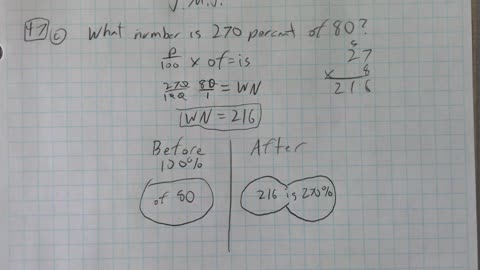 J.M.J.
47 c) What number is 270 percent of 80?
P/100 × of = is
270/100 80/1 = WN
WN = 216
5
27
× 8
216
Before
100%
After
of 80
216 is 270%